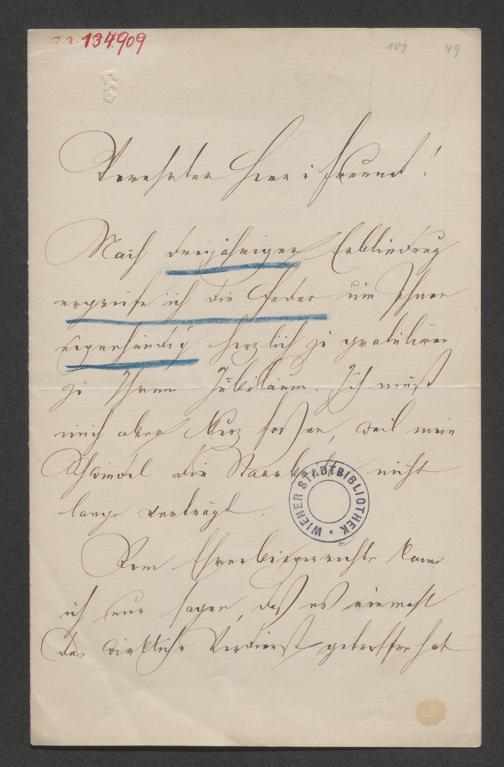 134909
109 49
Verehrter Herr u Freund!
Nach dreijähriger Erblindung
ergreife ich die Feder um Ihnen
eigenhändig herzlich zu gratuliren
zu Ihrem Jubiläum. Ich muß
mich aber kurz fassen, weil mein
Schwindel die nicht
lange verträgt.
Vom Ehrenbürgerrechte kann
ich nur sagen, daß es einmahl
das wirkliche Verdienst getroffen hat
WIENER STADTBIBLIOTHEK